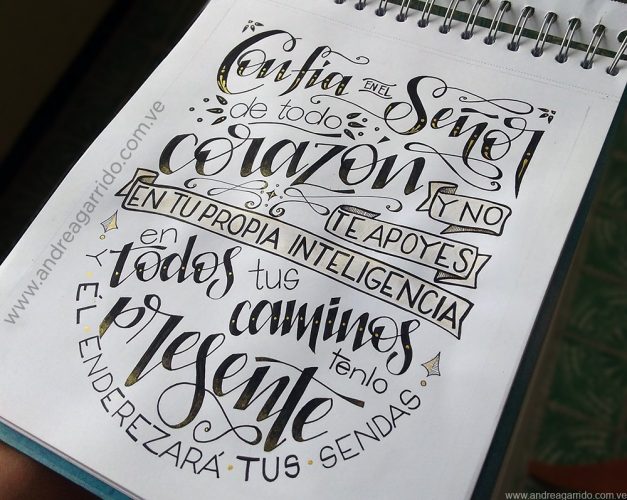 Confia EN EL Señor
de todo
corazón
Y NO
TE APOYES
EN TU PROPIA INTELIGENCIA
en todos tus
caminos
tenlo
presente
Y · ÉL · ENDEREZARÁ · TUS · SENDAS
www.andreagarrido.com.ve
www.andreagarrido.com.ve